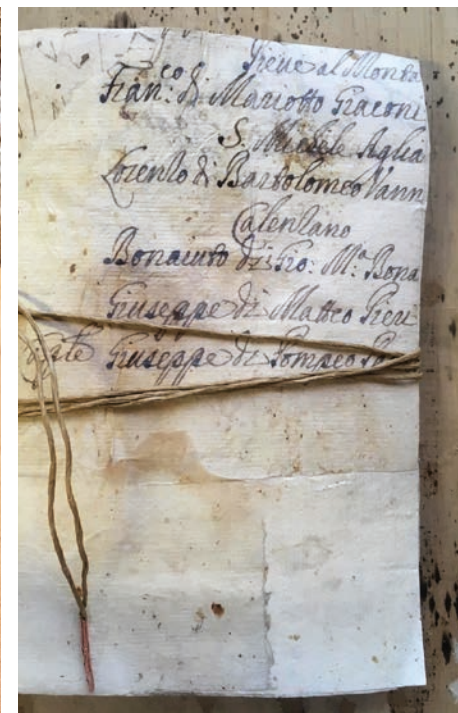 Pieve al Monta
Fran.co di Mariotto Giaconi
S. Michele Aglia
Lorenzo di Bartolomeo Vann
Calenzano
Bonaiuto di Gio: M.a Bona
Giuseppe di Matteo Pieu
Giuseppe di Pompeo